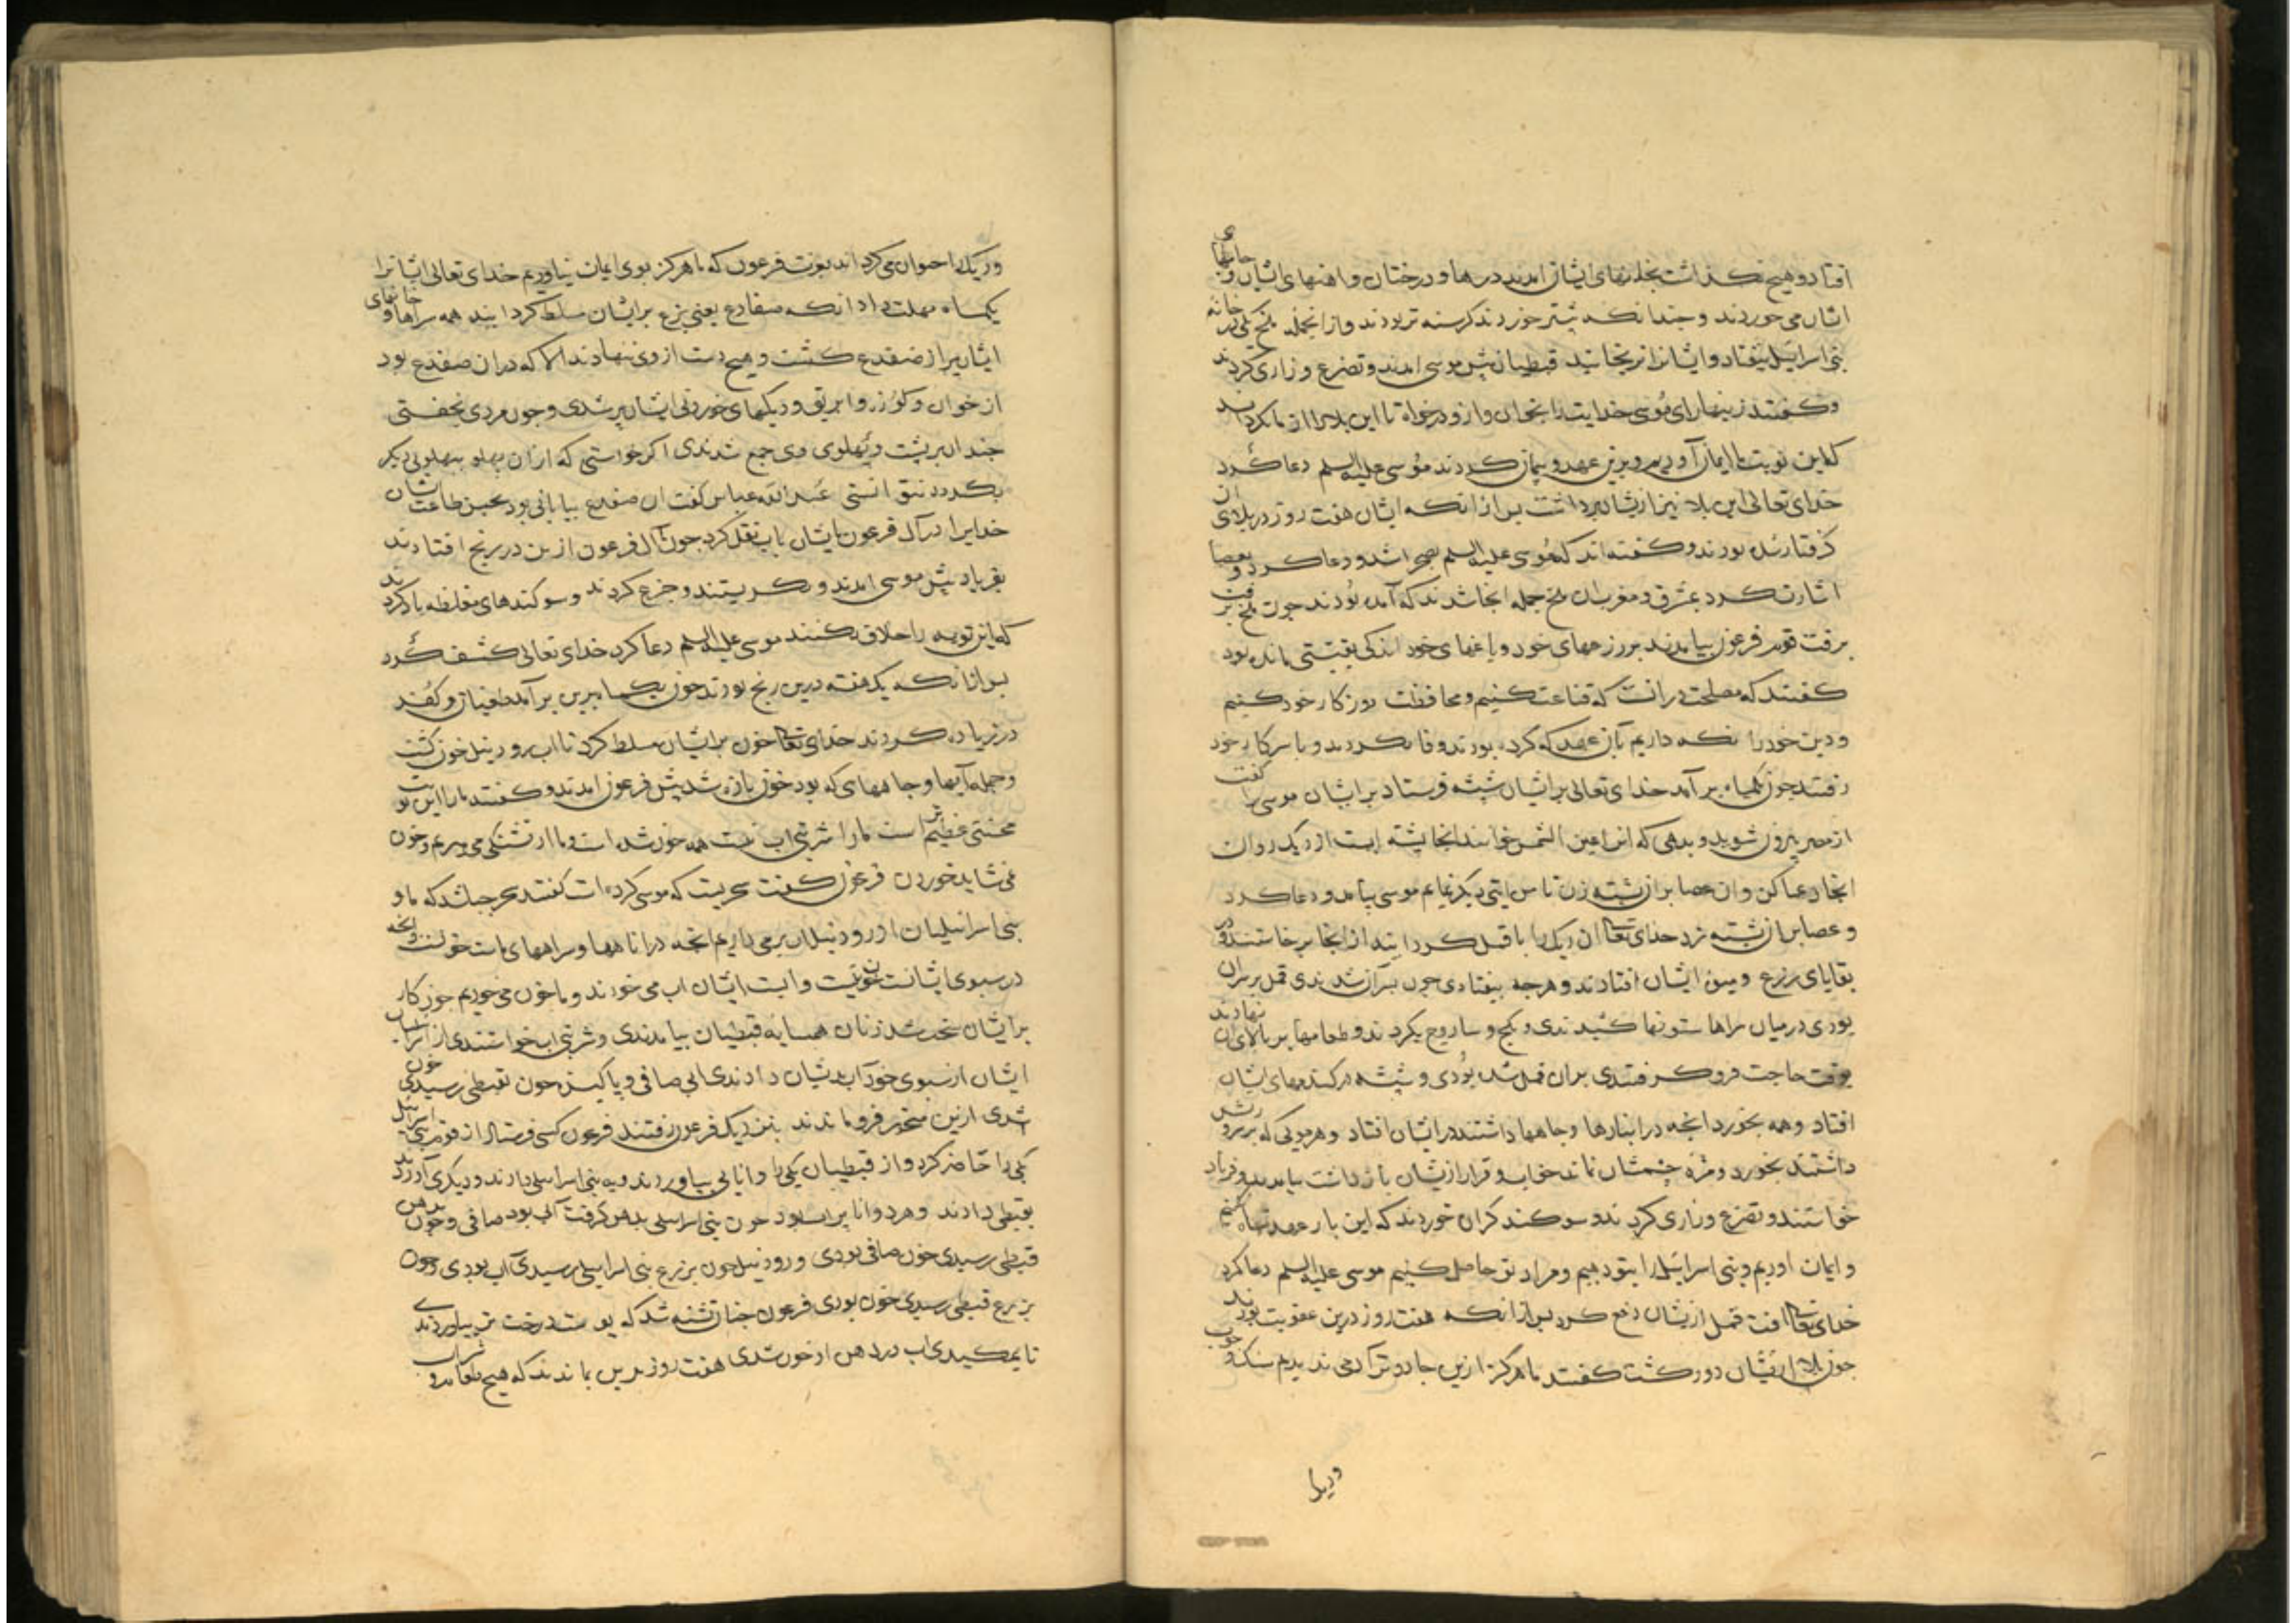 افتاد و هیچ نکذاشت بخانهای ایشان امدند درها و درختان و اهنهای ایشان و جامهای
ایشان می خوردند و چندانکه بیشتر خوردند کرسنه تر بودند و از انجمله ملخ یکی در خانه
بنی اسرایل نیفتاد و ایشانرا نرنجانید قبطیان پیش موسی امدند و تضرع و زاری کردند
و کفتند زینهار ای موسی خدایت را بخوان و ازو درخواه تا این بلا را از ما بکرداند
که این نوبت ما ایمان آوریم و برین عهد و پیمان کردند موسی علیه السلم دعا کرد
خدای تعالی این بلا نیز ازیشان برداشت پس از انکه ایشان هفت روز در بلای ان
کرفتار شده بودند و کفته اند که موسی علیه السلم بصحرا شد و دعا کرد و بعصا
اشارت کرد بمشرق و مغرب ان ملخ جمله انجا شدند که آمده بودند چون ملخ برفت
برفت قوم فرعون بیامدند بر زرعهای خود و باغهای خود اندکی بقیتی مانده بود
کفتند که مصلحت درانست که قناعت کنیم و محافظت روزکار خود کنیم
و دین خود را نکه داریم بآن عهد که کرده بودند وفا نکردند و با سرکار خود
رفتند چون یکماه برآمد خدای تعالی بر ایشان شپشه فرستاد بر ایشان موسی را کفت
از مصر بیرون شوید و بدهی که انرا عین الشمس خوانند انجا پشته ایست از ریک روان
انجا دعا کن و ان عصا بر ان پشته زن تا من ایتی دیکر نمایم موسی بیامد و دعا کرد
و عصا بر ان پشته زد خدای تعالی ان ریک را با قمل کردانید از انجا برخاستند و در
بقایای زرع و میوه ایشان افتادند و هرچه بیفتادی چون بران شدندی قمل بر بران
بودی درمیان سراها ستونها کشیدندی و بکچ و ساروج بکردند و طعامها بر بالای ان نهادند
بوقت حاجت فرو کرفتندی بران قمل شده بودی و شپشه در کندمهای ایشان
افتاد و همه بخورد انچه در انبارها و جاهها داشتند در ایشان افتاد و هر مویی که بر سر و ریش
داشتند بخورد و مژه چشمشان نماند خواب و قرار ازیشان بازداشت بیامدند و فریاد
خواستند و تضرع و زاری کردند و سوکند کران خوردند که این بار عهد تباه نکنیم
و ایمان اوریم و بنی اسرایل را بتو دهیم و مراد تو حاصل کنیم موسی علیه السلم دعا کرد
خدای تعالی افت قمل ازیشان دفع کرد پس از انکه هفت روز درین عقوبت بودند
چون بلا ازیشان دور کشت کفتند ما هرکز ازین جادوتر آدمی ندیدیم سنک و چوب
و ریک را
و ریک را حیوان می کرداند بعزت فرعون که ما هرکز بوی ایمان نیاوریم خدای تعالی ایشانرا
یکماه مهلت داد انکه ضفادع یعنی بزغ بر ایشان مسلط کردانید همه سراها و خانهای
ایشان پر از ضفدع کشت و هیچ دست از وی ننهادند الا که دران ضفدع بود
از خوان و کوزه و ابریق و دیکهای خوردنی ایشان پر شدی و چون مردی بخفتی
چندان بر پشت و پهلوی وی جمع شدندی اکر خواستی که از ان پهلو بپهلوی دیکر
بکردد نتوانستی عبدالله عباس کفت ان ضفدع بیابانی بود بحسن طاعت ایشان
خدایرا در آل فرعون بایشان باب نقل کرد چون آل فرعون ازین در رنج افتادند
بفریاد پیش موسی امدند و بکریستند و جزع کردند و سوکندهای مغلظه یاد کردند
که این توبه را خلاف نکنند موسی علیه السلم دعا کرد خدای تعالی کشف کرد
پس از انکه یک هفته درین رنج بودند چون یکماه برین برآمد طغیان و کفر
در زیاده کردند خدای تعالی خون بر ایشان مسلط کرد تا اب رود نیل خون کشت
و جمله آبها و جاهها که بود خون تازه شد پیش فرعون امدند و کفتند ما را این نوبت
محنتی عظیم است ما را شربتی اب نیست همه خون شده است و ما از تشنکی می میریم و خون
می نشاید خوردن فرعون کفت سحریست که موسی کرده است کفتند سحر چه باشد که ما و
بنی اسرائیلیان از رود نیل اب برمی داریم انچه در اناهها و سراههای ماست خونست و انچه
در سبوی ایشانست خون نیست و ابست ایشان اب می خورند و ما خون می خوریم چون کار
بر ایشان سخت شد زنان همسایه قبطیان بیامدندی و شربتی اب خواستندی از ایشان
ایشان از سبوی خود آب بدیشان دادندی ابی صافی و پاکیزه چون بقبطی رسیدی خون
شدی ازین متحیر فرو ماندند بنزدیک فرعون رفتند فرعون کسی فرستاد از قوم بنی اسرائیل
یکی را حاضر کرد و از قبطیان یکی را و انایی بیاوردند و به بنی اسراییلی دادند و دیکری آوردند
بقبطی دادند و هر دو انا پر اب بود چون بنی اسراییلی بدهن کرفت آبی بود صافی و چون بدهن
قبطی رسیدی خون صافی بودی و رود نیل چون بزرع بنی اسراییلی رسیدی آب بودی و چون
بزرع قبطی رسیدی خون بودی فرعون چنان تشنه شد که پوست درخت تر بیاوردندی
تا بمکیدی اب در دهن او خون شدی هفت روز بدین بماندند که هیچ طعام و شراب